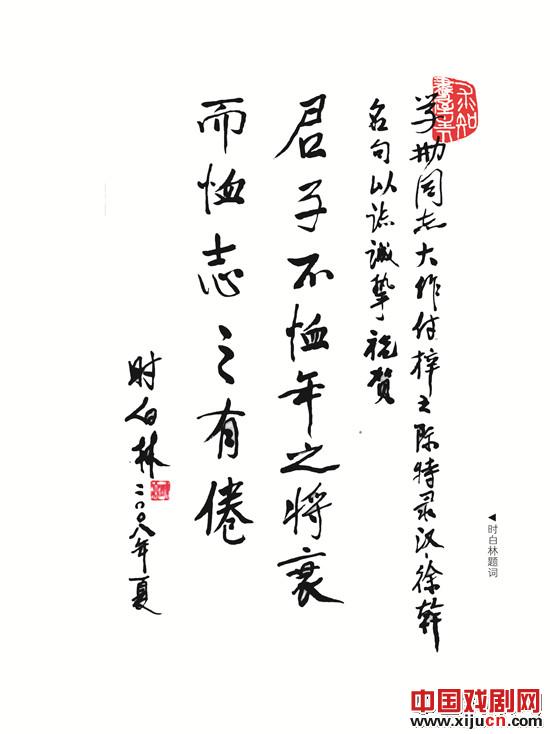 学同志大作付梓之际特录汉·徐幹
名句以誌诚挚祝贺
君子不恤年之将衰
而恤志之有倦
时白林
二〇〇八年夏
◀时白林题词
中国戏剧网
www.xijucn.com